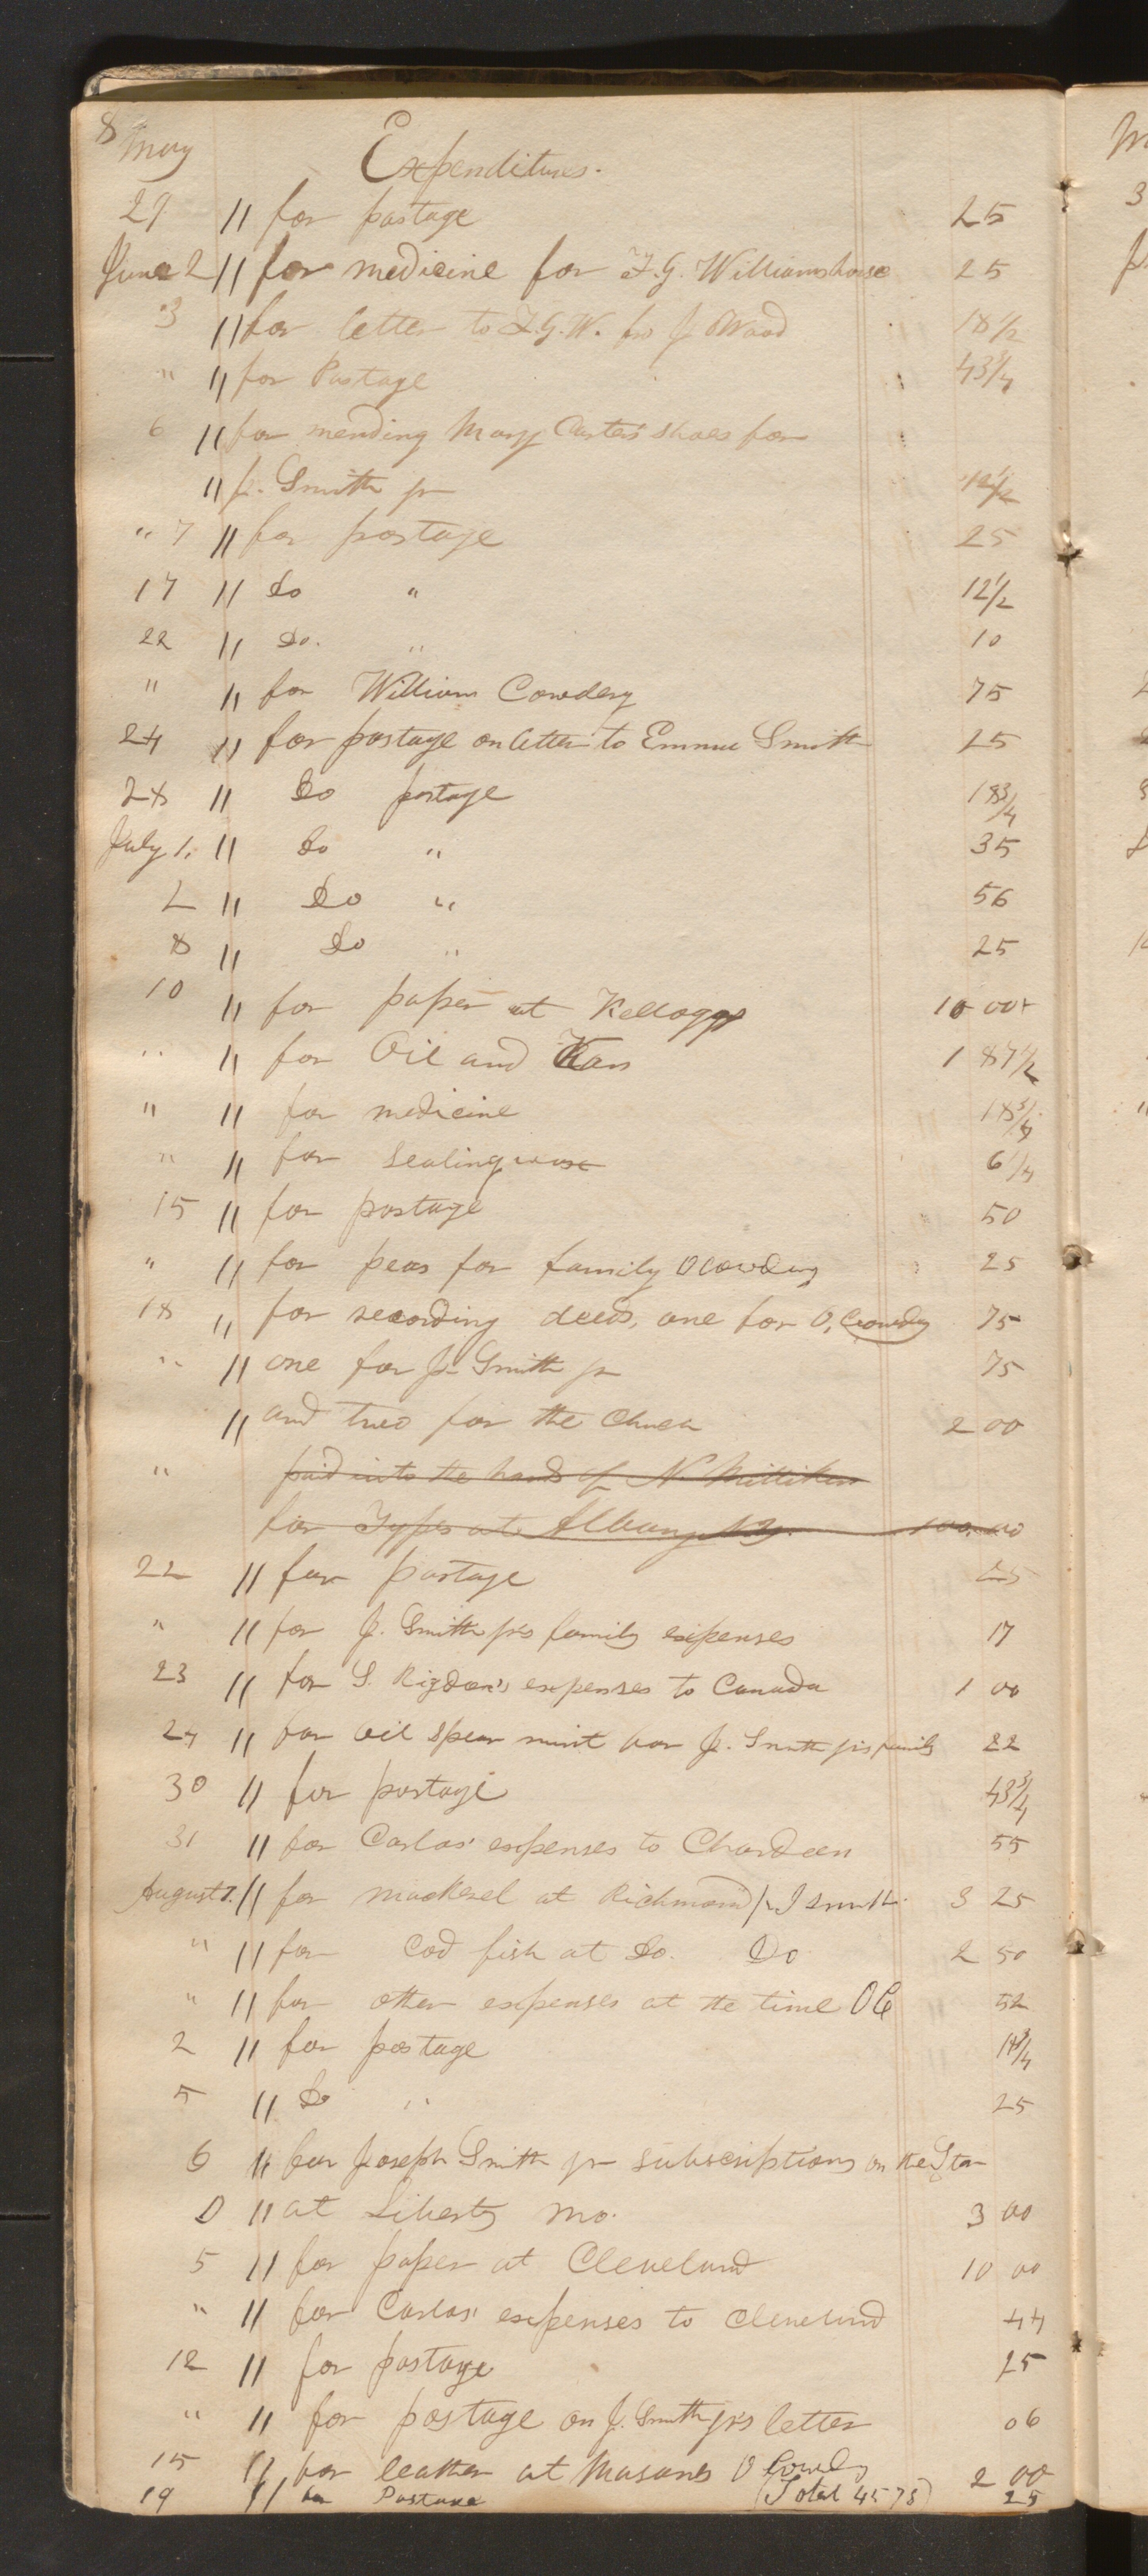 8
May Expenditures.
29 " for postage 25
June 2 " for medicine for F. G. Williams horse 25
3 " for letter to F. G. W. fro J Wood 18 1/2
" " for Postage 43 3/4
6 " for mending Mary Carters' shoes for
" J. Smith jr 12 1/2
" 7 " for postage 25
17 " Do " 12 1/2
22 " Do. " 10
" " for William Cowdery 75
24 " for postage on letter to Emma Smith 25
28 " Do postage 18 3/4
July 1. " Do " 35
2 " Do " 56
8 " Do " 25
10 " for paper at Kelloggs 10 00
" " for Oil and Kan 1 87 1/2
" " for medicine 18 3/4
" " for sealingwax 6 1/4
15 " for postage 50
" " for peas for family O Cowdery 25
18 " for recording deeds, one for O, Cowdery 75
" " one for J. Smith jr 75
" and two for the Church 2 00
" paid into the hands of N Milliken
for Types at Albany N.Y. 100.00
22 " for postage 25
" " for J. Smith jr's family expenses 17
23 " for S. Rigdon's expenses to Canada 1 00
24 " for oil spear mint for J. Smith jr's family 22
30 " for postage 43 3/4
31 " for Carlos' expenses to Chardeen 55
August 1. " for mackerel at Richmond J Smith 3 25
" " for Cod fish at Do. Do 2 50
" " for other expenses at the time OC 52
2 " for postage 18 3/4
5 " Do " 25
6 " for Joseph Smith jr subscriptions on the Star
" at Liberty Mo. 3 00
5 " for paper at Cleveland 10 00
" " for Carlos' expenses to Cleveland 44
12 " for postage 25
" " for postage on J. Smith jr's letter 06
15 " for leather at Masons O Cowdery 2 00
19 " for Postage (Total 45 78) 25